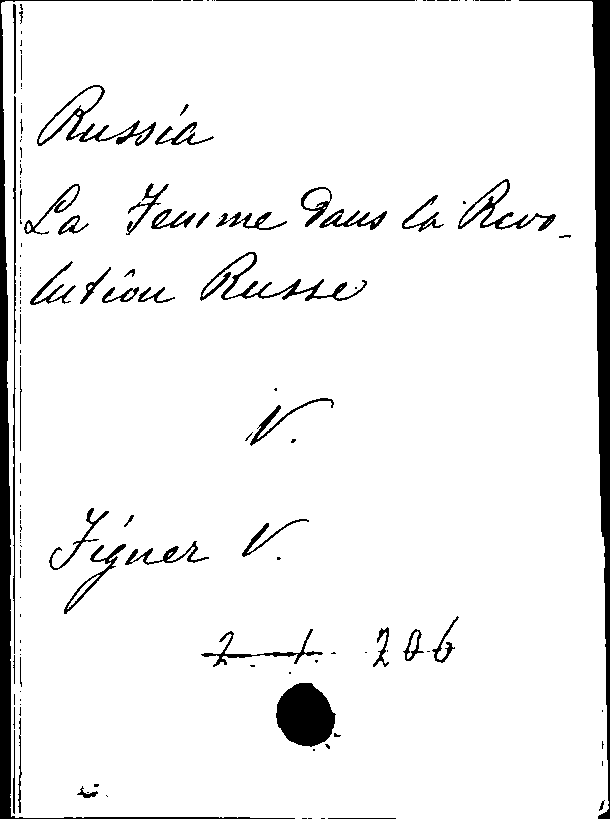 Russia
La Femme dans la Revo-
lution Russe
V.
Figner V.
2. 1. 206